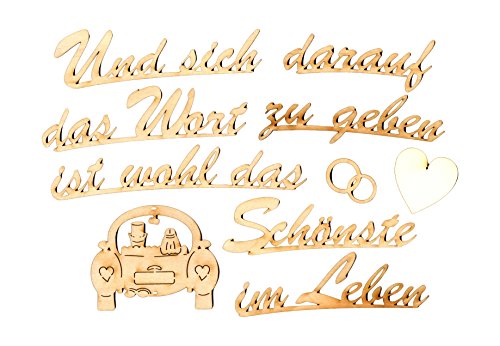 Und sich darauf
das Wort zu geben
ist wohl das
Schönste
im Leben